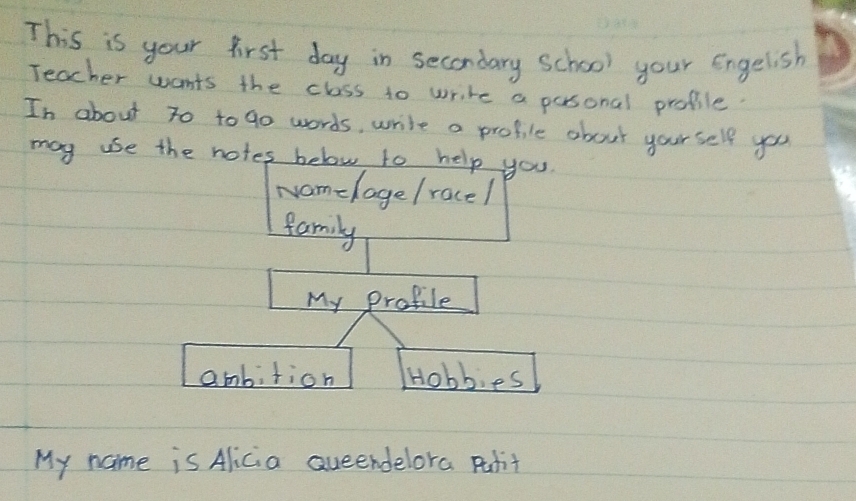 Date
This is your first day in secondary school your Engelish
Teacher wants the class to write a pasonal profile.
In about 70 to 90 words, write a profile about yourself you
may use the notes below to help you.
Name/age/race/
family
My Profile
ambition
Hobbies
My name is Alicia Queendelora Patit